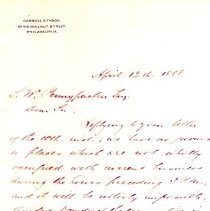 CARROLL S. TYSON,
PHILADELPHIA.
April 12th, 1888
S. W. Pennypacker Esq
Dear Sir,
Replying to your letter
of the 10th inst, we have no
places which are not wholly
occupied with current business
during the hours preceding 3 P.M.
and it will be utterly impossible,